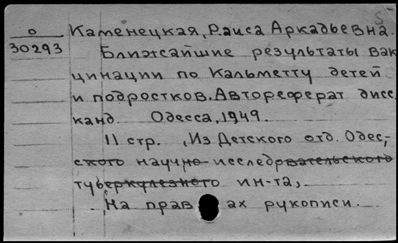 О
30293
Каменецкая, Раиса Аркадьевна.
Ближайшие результаты вак
цинации по Кальметту детей
и подростков. Автореферат дисс.
канд. Одесса, 1949.
11 стр. (Из Детского отд. Одес-
ского научно-исследовательского
туберкулезного ин-та).
На правах рукописи.